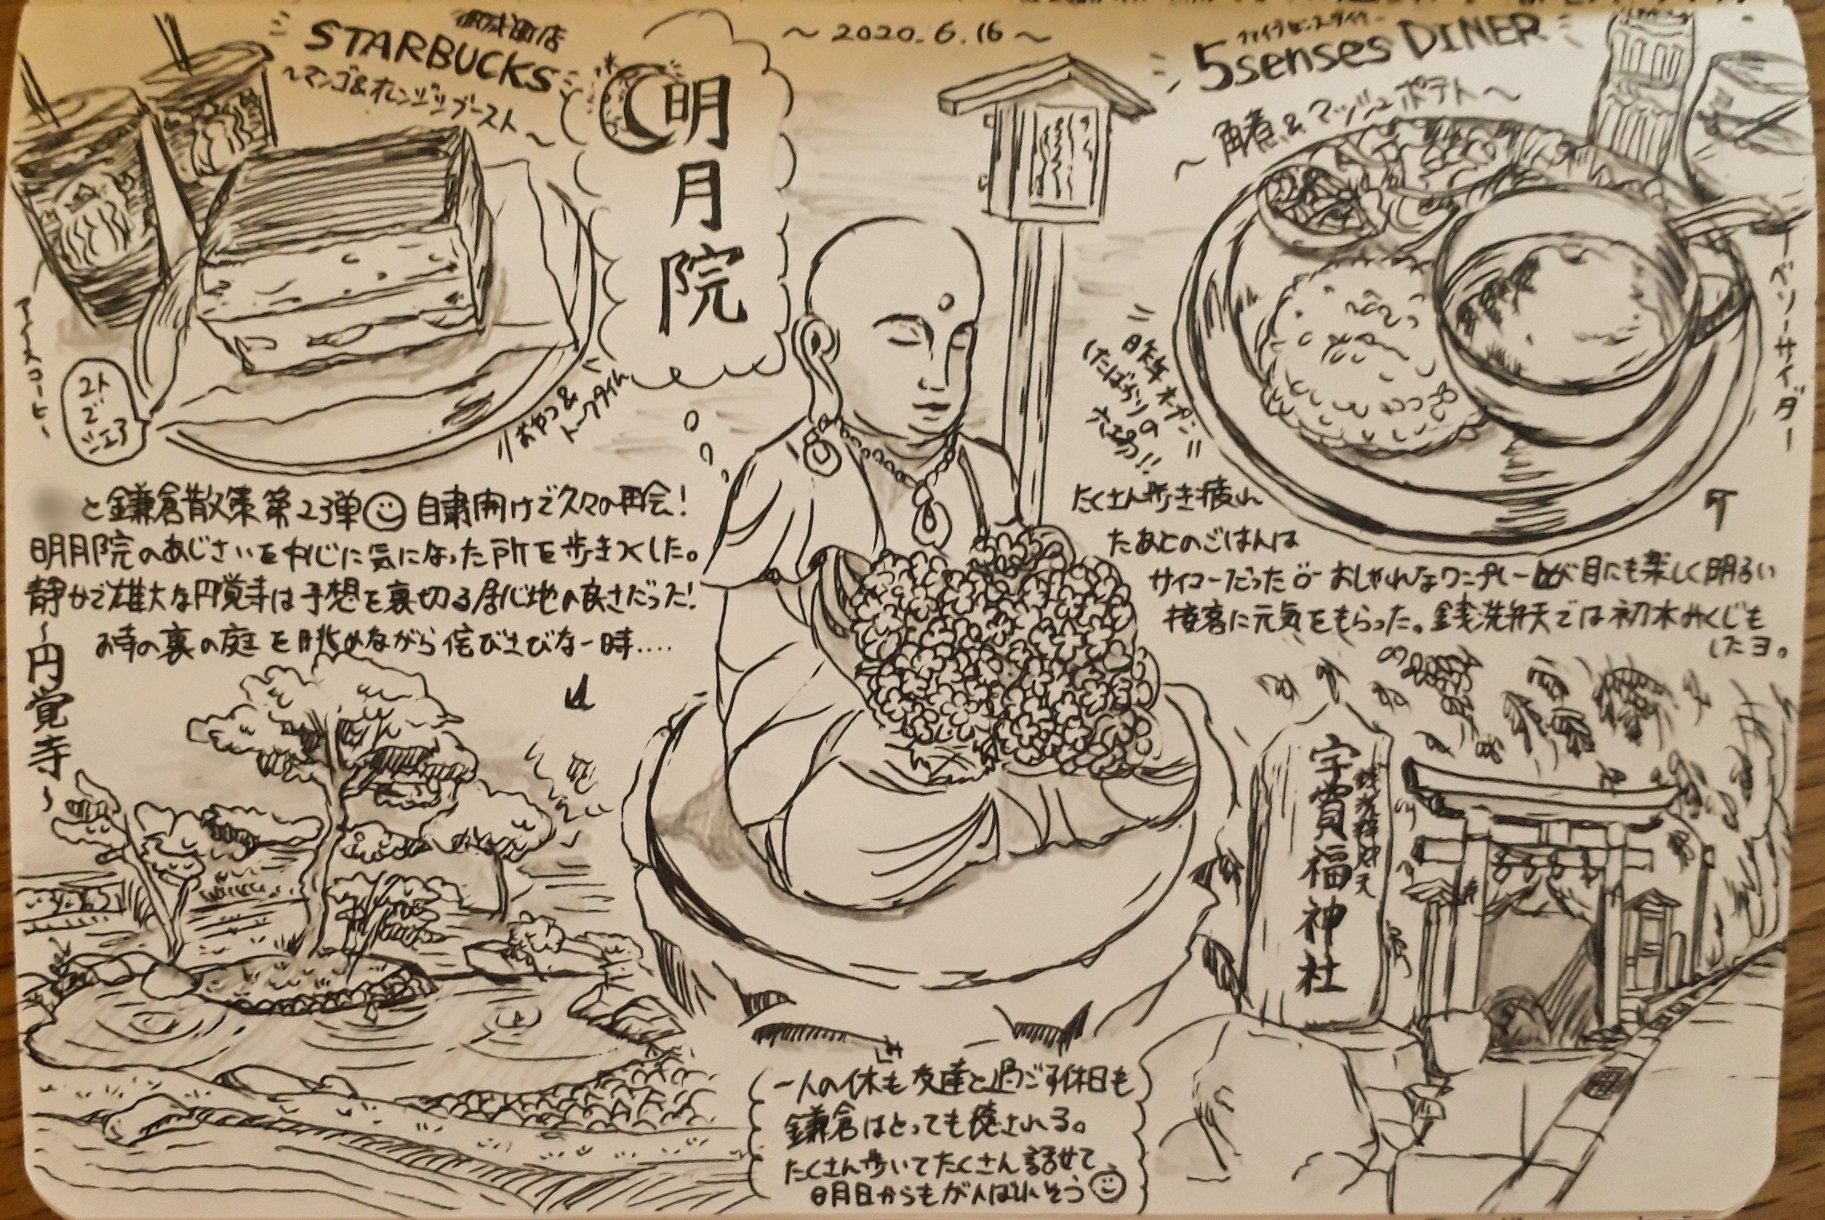 ~2020.6.16~
御成町店
STARBUCKS
~マンゴ&オレンジリブースト~
アイスコーヒー
2人
で
シェア
おやつ&
トークタイム
明月院
5senses DINER
~角煮&マッシュポテト~
ベリーサイダー
昨年オープン
したばかりの
穴場!!
と鎌倉散策第23弾 自粛開けで久々の再会!
明月院のあじさいを中心に気になった所を歩きつくした。
静かで雄大な円覚寺は予想を裏切る居心地の良さだった!
お寺の裏の庭を眺めながら侘びさびな一時....
~円覚寺~
たくさん歩き疲れ
たあとのごはんは
サイコーだった おしゃれなワンプレートが目にも楽しく明るい
接客に元気をもらった。銭洗弁天では初水みくじも
したヨ。
銭洗辯財天
宇賀福神社
一人の休も友達と過ごす休日も
鎌倉はとっても癒される。
たくさん歩いてたくさん話せて
明日からもがんばれそう